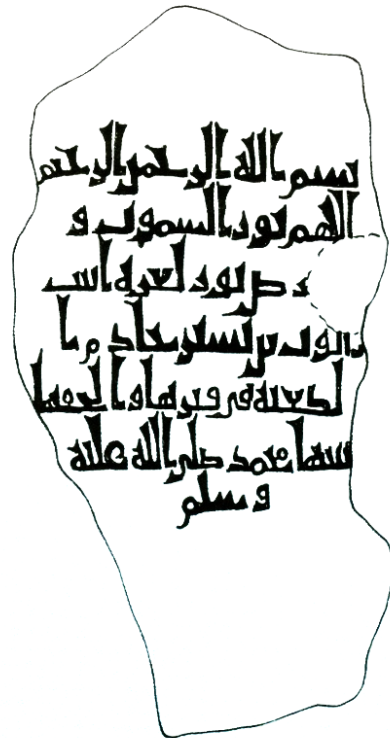 بسم الله الرحمن الرحيم
اللهم نور السموت و
رض نور لعزة ابنت
بن خادم ا
لكعبة في قبرها والحقها
بنبيها محمد صلى الله عليه
وسلم